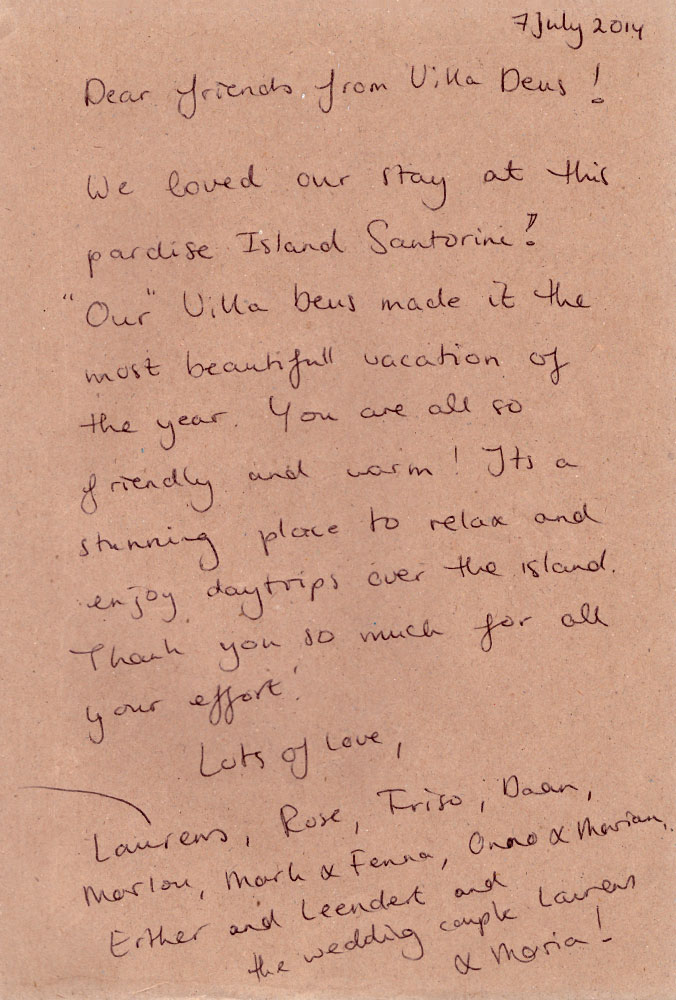 7 July 2014
Dear friends from Villa Deus !
We loved our stay at this
pardise Island Santorini!
"Our" Villa Deus made it the
most beautifull vacation of
the year. You are all so
friendly and warm! Its a
stunning place to relax and
enjoy daytrips over the island.
Thank you so much for all
your effort!
Lots of love,
Laurens, Rose, Friso, Daan,
Marlou, Mark & Fenna, Onno & Marian,
Esther and Leendert and
the wedding couple Laurens
& Maria!